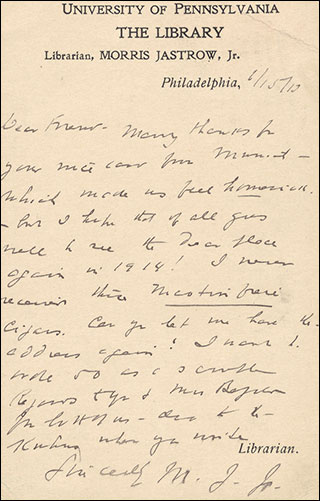 UNIVERSITY OF PENNSYLVANIA
THE LIBRARY
Librarian, MORRIS JASTROW, Jr.
Philadelphia, 6/15/13
Dear Friend - Many thanks for
your nice card from Munich -
which made us feel homesick.
- but I hope that if all goes
well to see the dear place
again in 1914! I never
received those Nicotinfreie
cigars. Can you let me have the
address again? I want to
order 50 as a sample
Regards to you & Mrs
from both of us - also to the
when you write
Librarian.
Sincerely M. J. Jr.